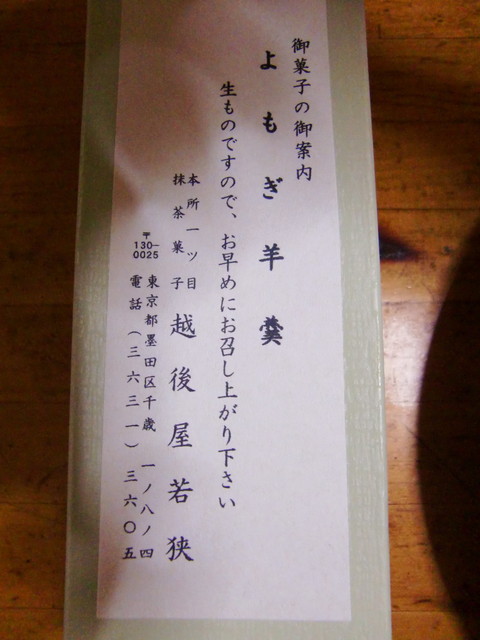 御菓子の御案内
よもぎ羊羹
生ものですので、お早めにお召し上がり下さい
本所一ツ目
抹茶菓子
越後屋若狭
〒130-0025
東京都墨田区千歳 一ノ八ノ四
電話(三六三一)三六〇五